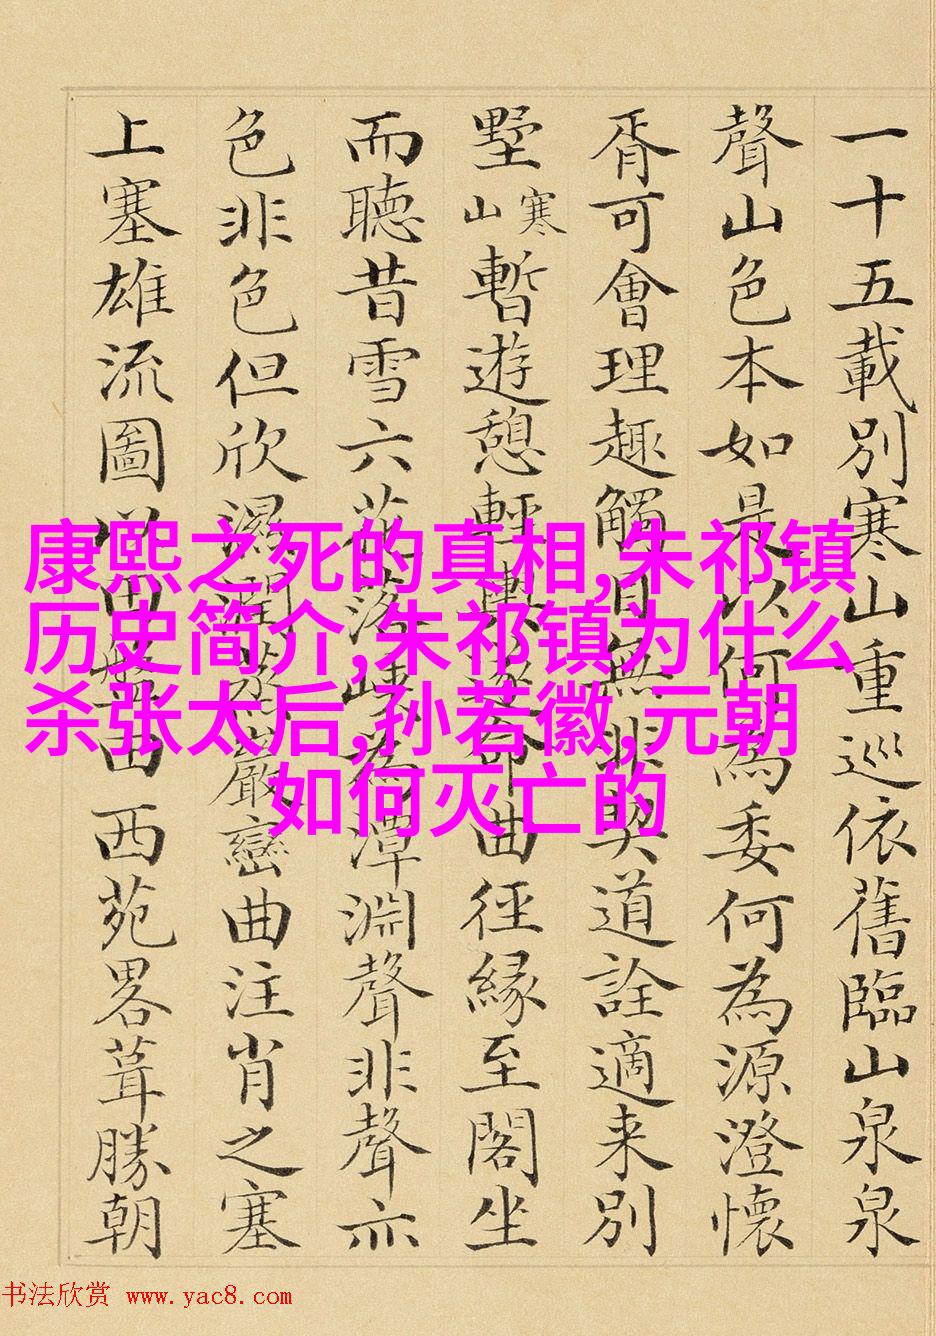 一十五載別寒山重巡依舊臨山泉泉
聲山色本如是以何為委何為源澄懷
胥可會理趣觸目無非契道詮適来別
墅寒山暫遊憩輕輿曲徑緣至閣坐
而聽昔雪六花落為潭淵聲非聲亦
色非色但欣濕潤巖巒曲注肖之塞
上塞雄流圖西苑畧葺勝朝
康熙之死的真相,朱祁镇
历史简介,朱祁镇为什么
杀张太后,孙若徽,元朝
如何灭亡的
书法欣赏 www.yac8.com